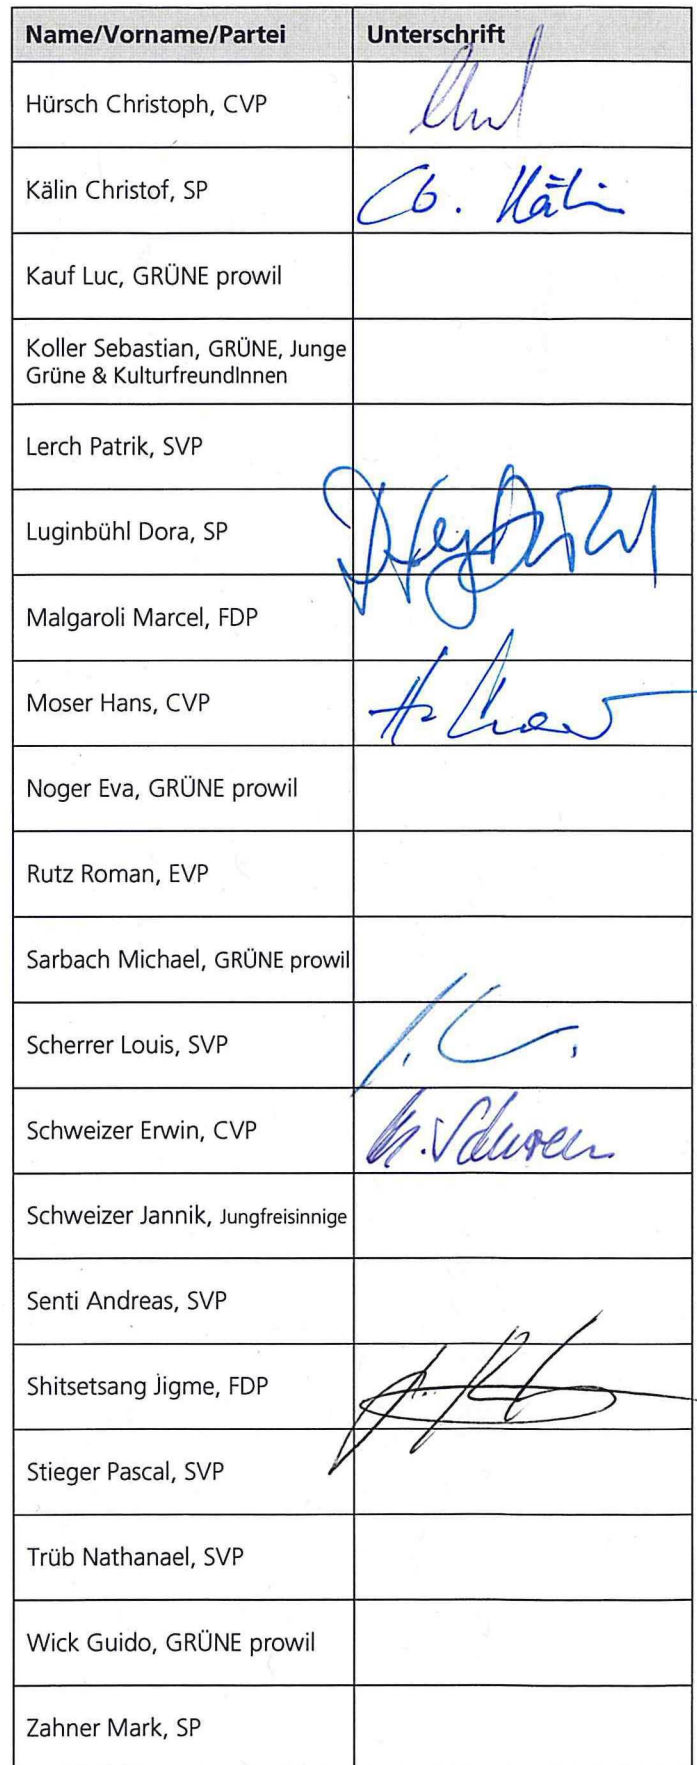 Name/Vorname/Partei Unterschrift
Hürsch Christoph, CVP
Kälin Christof, SP Ch. Kälin
Kauf Luc, GRÜNE prowil
Koller Sebastian, GRÜNE, Junge
Grüne & KulturfreundInnen
Lerch Patrik, SVP
Luginbühl Dora, SP
Malgaroli Marcel, FDP
Moser Hans, CVP
Noger Eva, GRÜNE prowil
Rutz Roman, EVP
Sarbach Michael, GRÜNE prowil
Scherrer Louis, SVP
Schweizer Erwin, CVP
Schweizer Jannik, Jungfreisinnige
Senti Andreas, SVP
Shitsetsang Jigme, FDP
Stieger Pascal, SVP
Trüb Nathanael, SVP
Wick Guido, GRÜNE prowil
Zahner Mark, SP